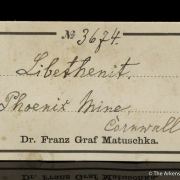 № 3674.
Libethenit.
Phoenix Mine,
Cornwall
Dr. Franz Graf Matuschka.
© The Arkens